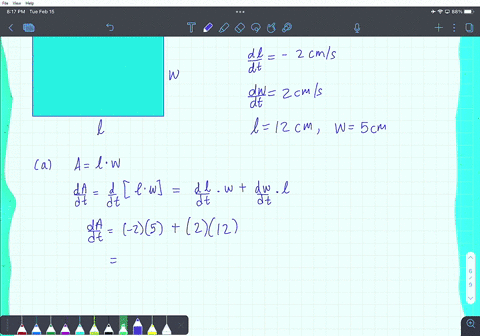 File View
6:17 PM Tue Feb 15
88%
dl/dt = - 2 cm/s
w
dw/dt = 2 cm/s
l
l = 12 cm, w = 5 cm
(a) A = l · w
dA/dt = d/dt [ l · w ] = dl/dt · w + dw/dt · l
dA/dt = (-2)(5) + (2)(12)
=